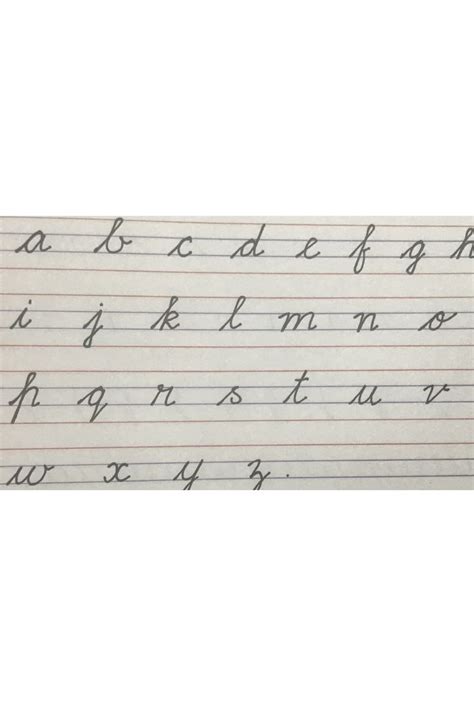 a b c d e f g h
i j k l m n o
p q r s t u v
w x y z .